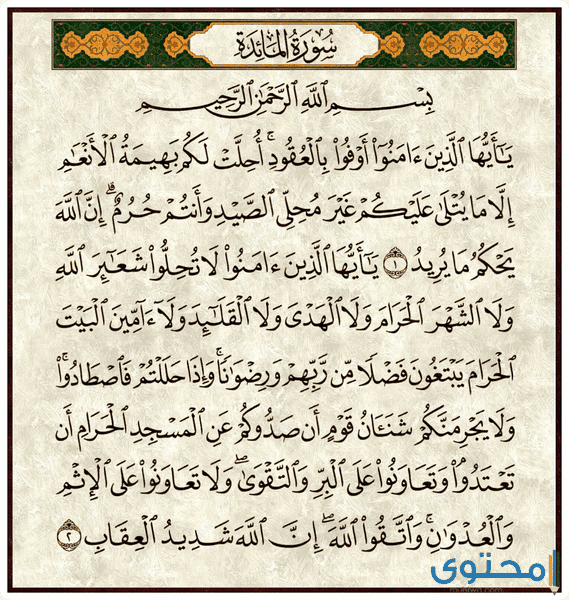 سُورَةُ المَائِدَةِ
بِسْمِ ٱللَّهِ ٱلرَّحْمَٰنِ ٱلرَّحِيمِ
يَٰٓأَيُّهَا ٱلَّذِينَ ءَامَنُوٓا۟ أَوْفُوا۟ بِٱلْعُقُودِ ۚ أُحِلَّتْ لَكُم بَهِيمَةُ ٱلْأَنْعَٰمِ
إِلَّا مَا يُتْلَىٰ عَلَيْكُمْ غَيْرَ مُحِلِّى ٱلصَّيْدِ وَأَنتُمْ حُرُمٌ ۗ إِنَّ ٱللَّهَ
يَحْكُمُ مَا يُرِيدُ ١ يَٰٓأَيُّهَا ٱلَّذِينَ ءَامَنُوا۟ لَا تُحِلُّوا۟ شَعَٰٓئِرَ ٱللَّهِ
وَلَا ٱلشَّهْرَ ٱلْحَرَامَ وَلَا ٱلْهَدْىَ وَلَا ٱلْقَلَٰٓئِدَ وَلَآ ءَآمِّينَ ٱلْبَيْتَ
ٱلْحَرَامَ يَبْتَغُونَ فَضْلًا مِّن رَّبِّهِمْ وَرِضْوَٰنًا ۚ وَإِذَا حَلَلْتُمْ فَٱصْطَادُوا۟ ۚ
وَلَا يَجْرِمَنَّكُمْ شَنَـَٔانُ قَوْمٍ أَن صَدُّوكُمْ عَنِ ٱلْمَسْجِدِ ٱلْحَرَامِ أَن
تَعْتَدُوا۟ ۘ وَتَعَاوَنُوا۟ عَلَى ٱلْبِرِّ وَٱلتَّقْوَىٰ ۖ وَلَا تَعَاوَنُوا۟ عَلَى ٱلْإِثْمِ
وَٱلْعُدْوَٰنِ ۚ وَٱتَّقُوا۟ ٱللَّهَ ۖ إِنَّ ٱللَّهَ شَدِيدُ ٱلْعِقَابِ ٢
محتوى